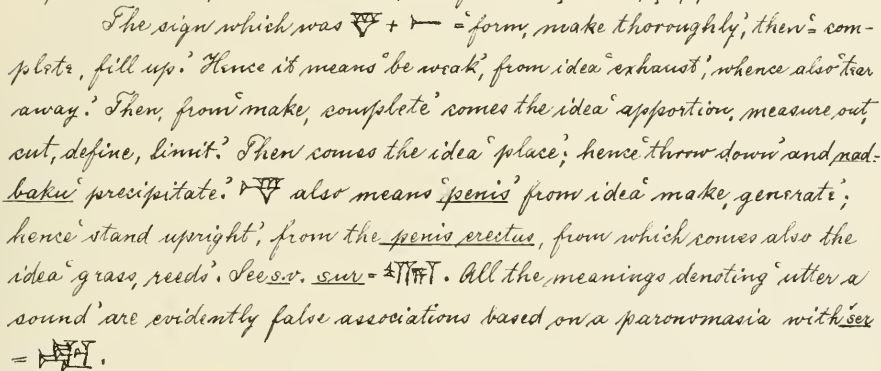 The sign which was + = 'form, make thoroughly', then = com-
plete, fill up.' Hence it means 'be weak', from idea 'exhaust', whence also 'tear
away.' Then, from 'make, complete' comes the idea 'apportion, measure out,
cut, define, limit.' Then comes the idea 'place'; hence 'throw down' and nad-
baku 'precipitate.' also means 'penis' from idea 'make, generate';
hence 'stand upright', from the penis erectus, from which comes also the
idea 'grass, reeds'. See s.v. sur = . All the meanings denoting 'utter a
sound' are evidently false associations based on a paronomasia with ser
= .